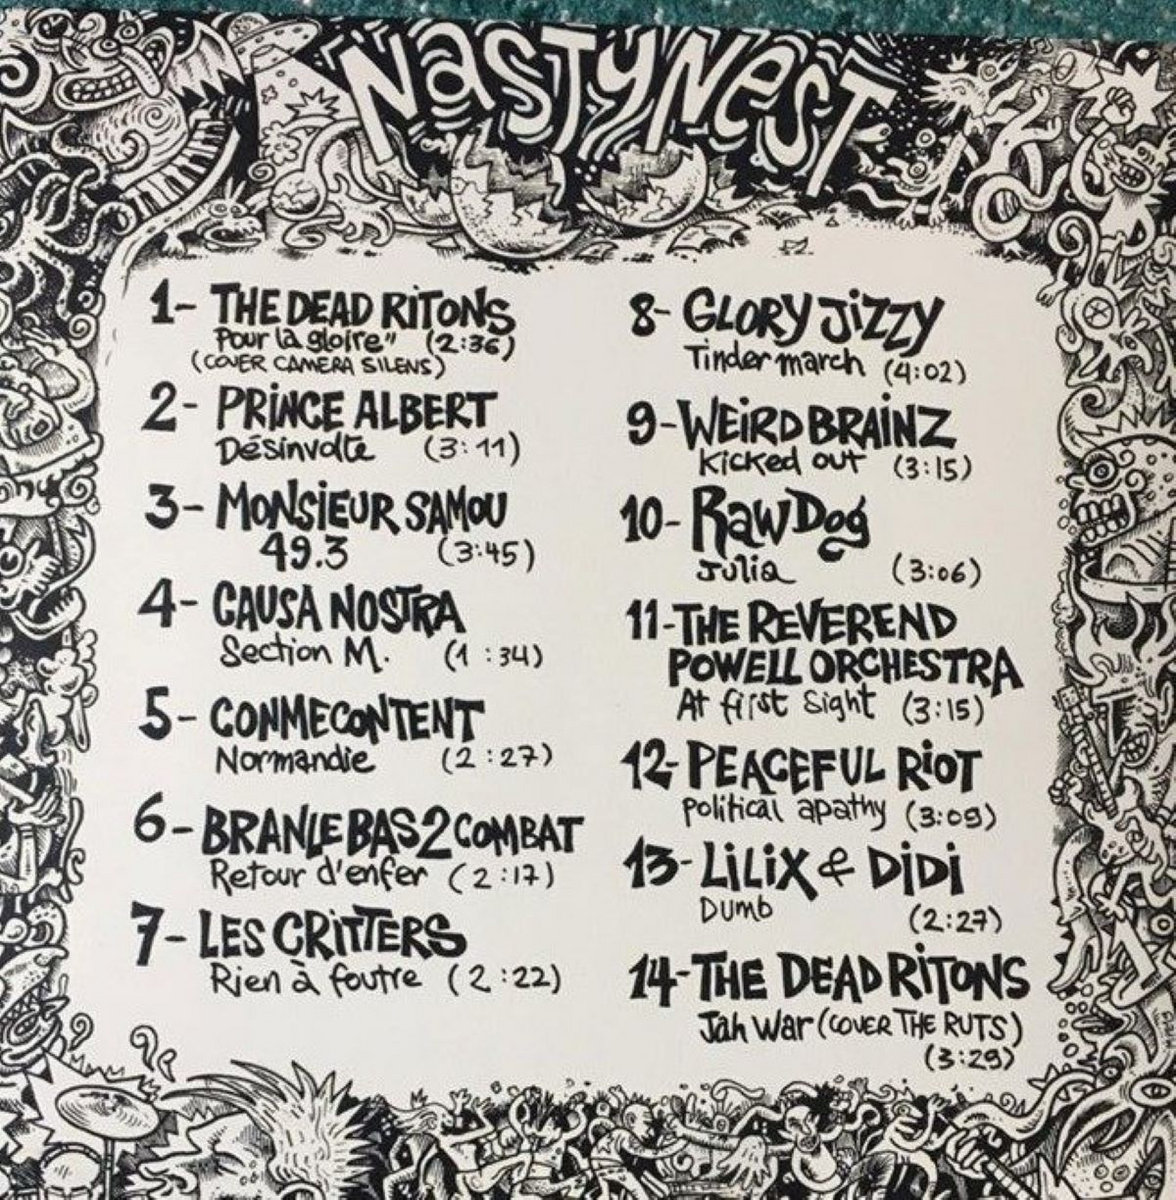 NASTY NEST
1- THE DEAD RITONS
Pour la gloire" (2:36)
(COVER CAMERA SILENS)
2- PRINCE ALBERT
Désinvolte (3:11)
3- MONSIEUR SAMOU
49.3 (3:45)
4- CAUSA NOSTRA
Section M. (1:34)
5- CONMECONTENT
Normandie (2:27)
6- BRANLE BAS 2 COMBAT
Retour d'enfer (2:17)
7- LES CRITTERS
Rien à foutre (2:22)
8- GLORY JiZZY
Tinder march (4:02)
9- WEiRD BRAiNZ
Kicked out (3:15)
10- RAW DOg
Julia (3:06)
11- THE REVEREND
POWELL ORCHESTRA
At first Sight (3:15)
12- PEACEFUL RiOT
political apathy (3:09)
13- LiLiX & DiDi
DUMb (2:27)
14- THE DEAD RITONS
Jah War (COVER THE RUTS)
(3:29)